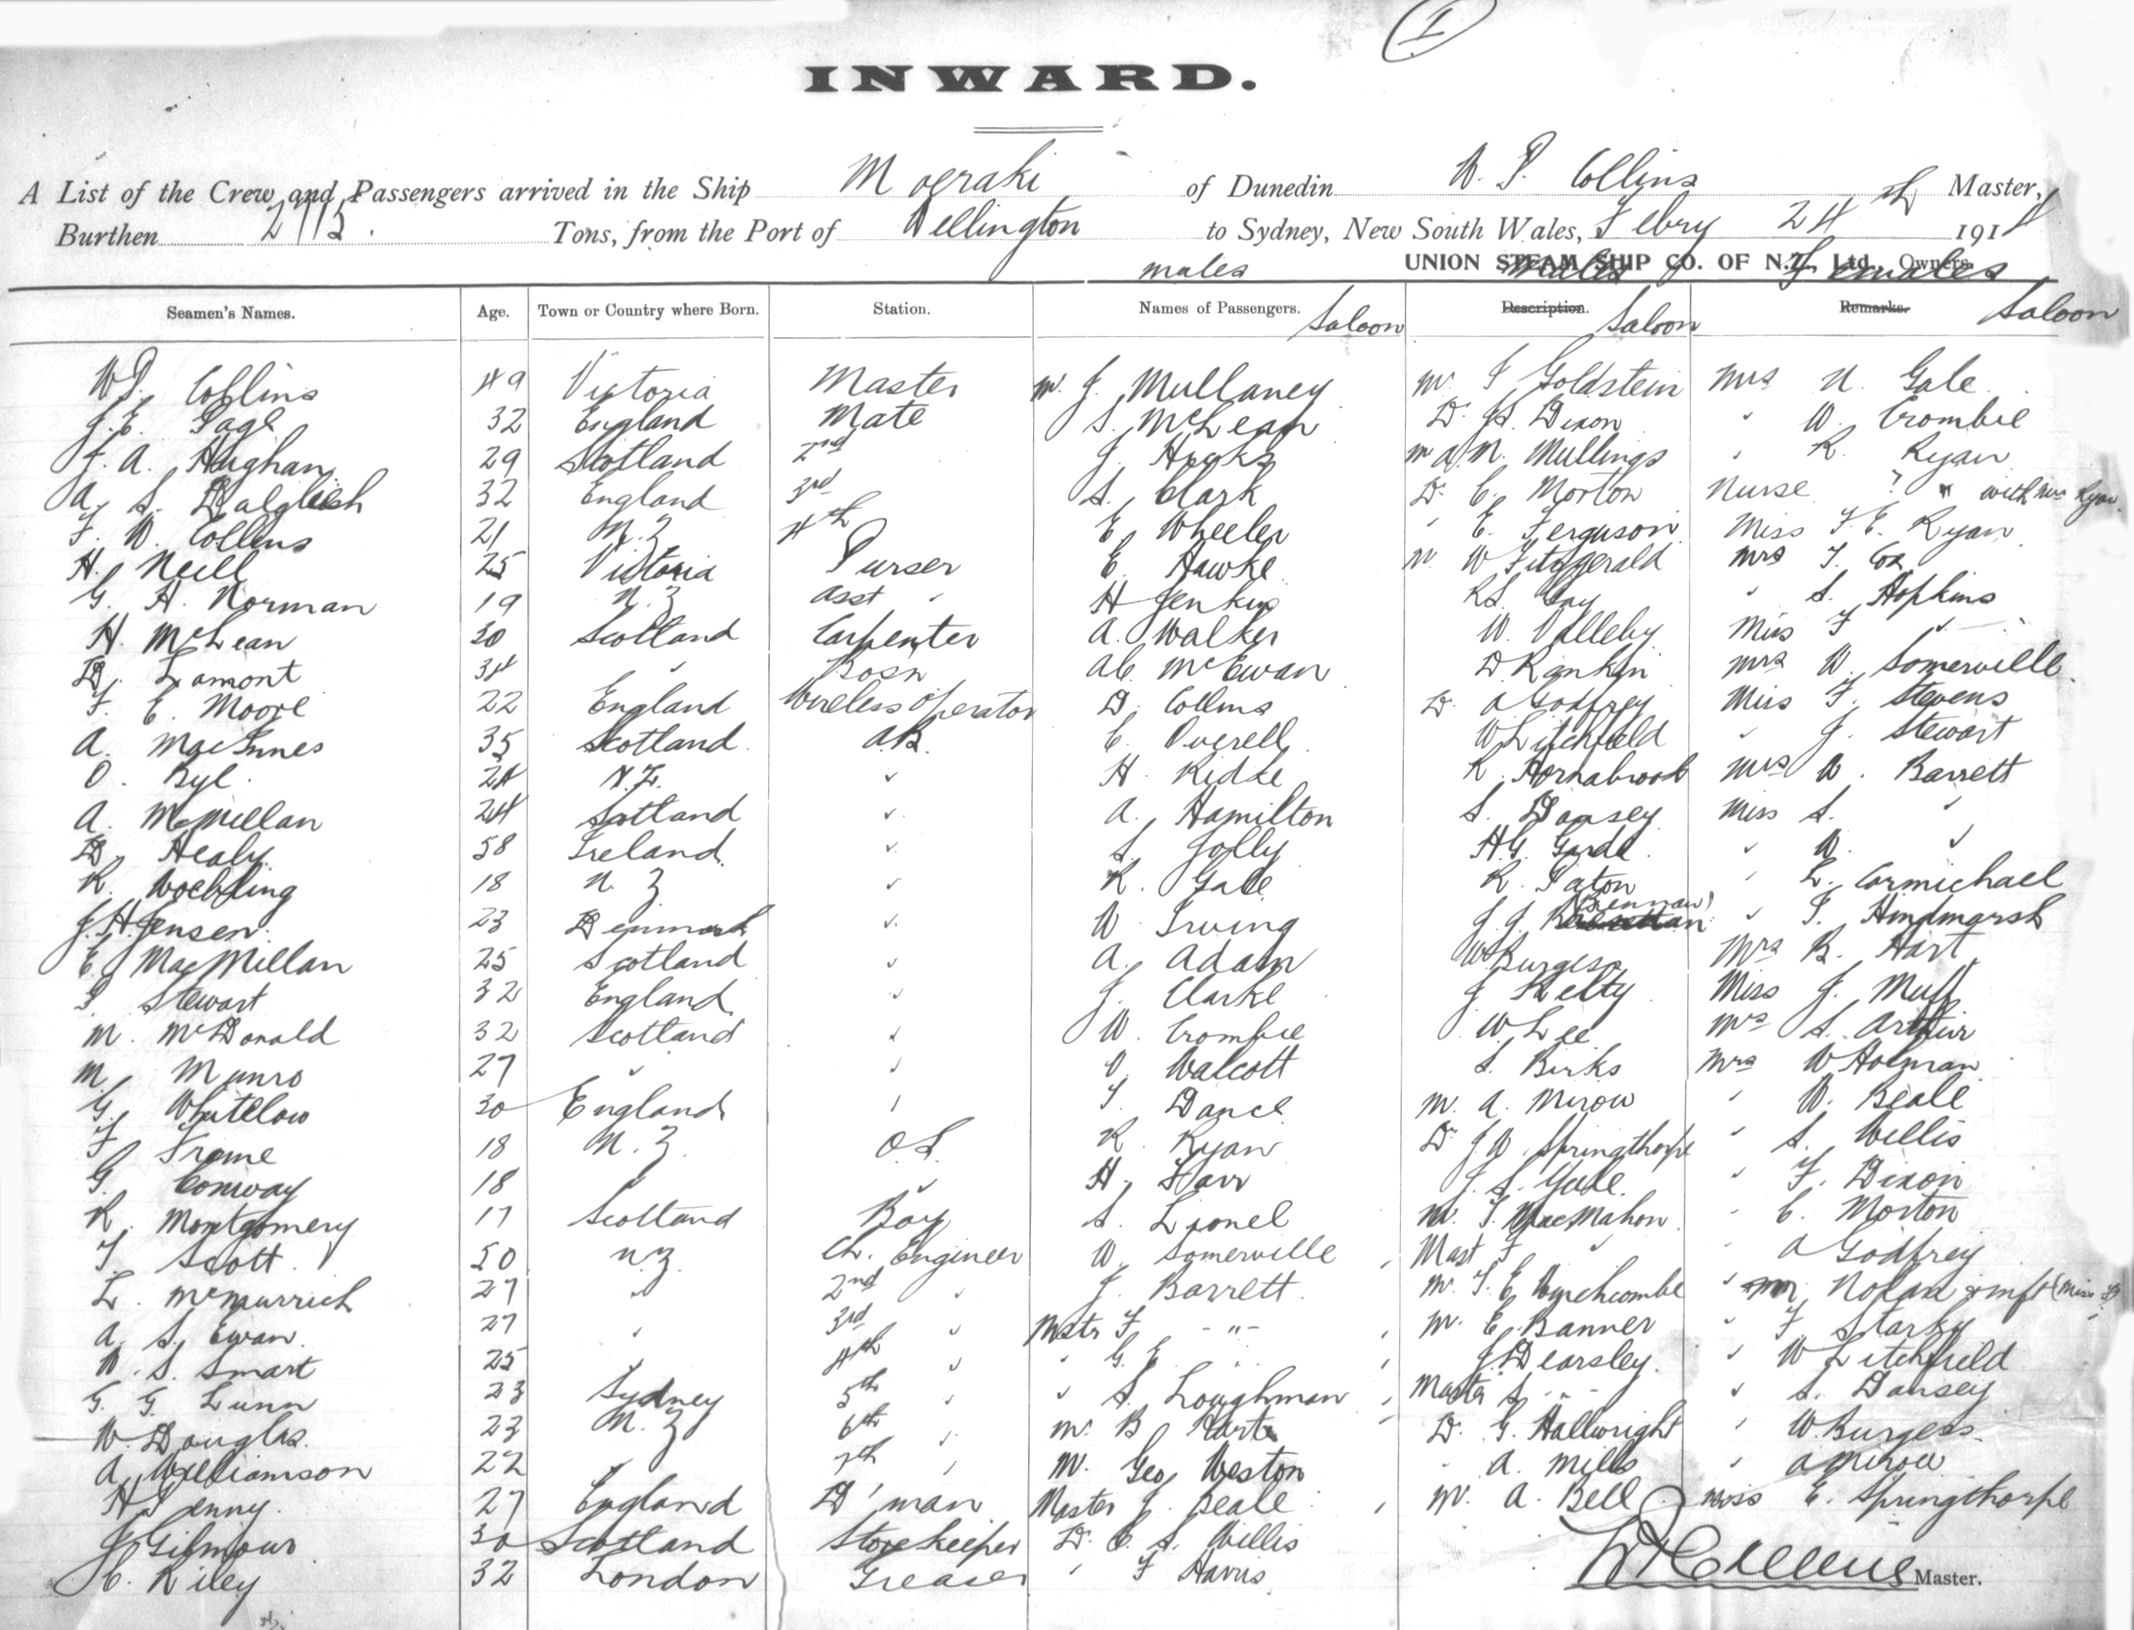 I
INWARD.
A List of the Crew and Passengers arrived in the Ship Moeraki of Dunedin W. P. Collins Master,
Burthen Tons, from the Port of Wellington to Sydney, New South Wales, Febry 24th 191
UNION STEAM SHIP CO. OF N.Z., Ltd., Owners.
males males Females
Seamen's Names. Age. Town or Country where Born. Station. Names of Passengers. Saloon Description. Saloon Remarks. Saloon
W.P. Collins 49 Victoria Master Mr. J. Mullaney Mr. Goldstein Mrs N. Gale
J. E. Page 32 England Mate S. McLean Dr. Dixon " W. Crombie
J. A. Hughan 29 Scotland 2nd J. Mr A. N. Mullings " R. Ryan
A. S. Dalgliesh 32 England 3rd S. Clark Dr. C. Morton Nurse with Mrs Ryan
F. W. Collins 21 N.Z 4th E. Wheeler " E. Ferguson Miss F. E. Ryan
H. Neill 25 Victoria Purser E. Hawke W Fitzgerald Mrs T. Cox
G. H. Norman 19 N.Z Asst " H Jenkins Gay " S. Hopkins
H. McLean 30 Scotland Carpenter A. Walker W. Miss F "
D. Lamont 34 " Bosn McEwan D Rankin Mrs W. Somerville
F. E. Moore 22 England Wireless Operator D. Collins Dr. A Godfrey Miss F. Stevens
A. MacInnes 35 Scotland AB. C. Overell W Litchfield " J. Stewart
O. Byl 24 N.Z. " H. R. Hornabrook Mrs W. Barrett
A. McMillan 24 Scotland " A. Hamilton S. Dansey Miss S. "
D. Healy 58 Ireland " S. Jolly " W. "
R. Woebling 18 N.Z " R. Gale R. Paton " L. Carmichael
J. H. Jensen 23 Denmark " W Irving J. J. (Brennan) " Hindmarsh
E. MacMillan 25 Scotland " A. Adam W Burgess Mrs B. Hart
Stewart 32 England " J. Clarke J Miss J. Muff
M. McDonald 32 Scotland " W. Crombie W Lee Mrs S. Arthur
M. Munro 27 " " O. Walcott S. Birks Mrs W Holman
G. Whitelow 30 England " Dance Mr. A. Mirow " W. Beale
F Frame 18 N.Z. O.S. R. Ryan Dr J W. Springthorpe " S. Willis
G. Conway 18 " " H. J. S. Yuile " F. Dixon
R. Montgomery 17 Scotland Boy S. Lionel Mr. MacMahon " C. Morton
T. Scott 50 N.Z. Ch. Engineer W. Somerville Mast F " " A Godfrey
L. McMurrich 27 " 2nd " J. Barrett Mr. Winchcombe " Nolan & inft (Miss
A. S. Ewan 27 " 3rd " Mstr F -"- Mr. E. Banner " F Starky
W. S. Smart 25 " 4th " " G. E " J. Dearsley " W Litchfield
G. G. Lunn 23 Sydney 5th " " S. Loughman Master S. " " S. Dansey
W. Douglas 23 N.Z 6th " Mr. B Dr. G. Hallwright " W Burgess
A. Williamson 22 " 7th " Mr. Geo Weston " A. Mills " A Mirow
H Penny 27 England D'man Master J. Beale Mr. A. Bell Miss E. Springthorpe
J Gilmour 30 Scotland Storekeeper Dr. C. S. Willis
C. Riley 32 London Greaser " F Harris
W P Collins Master.